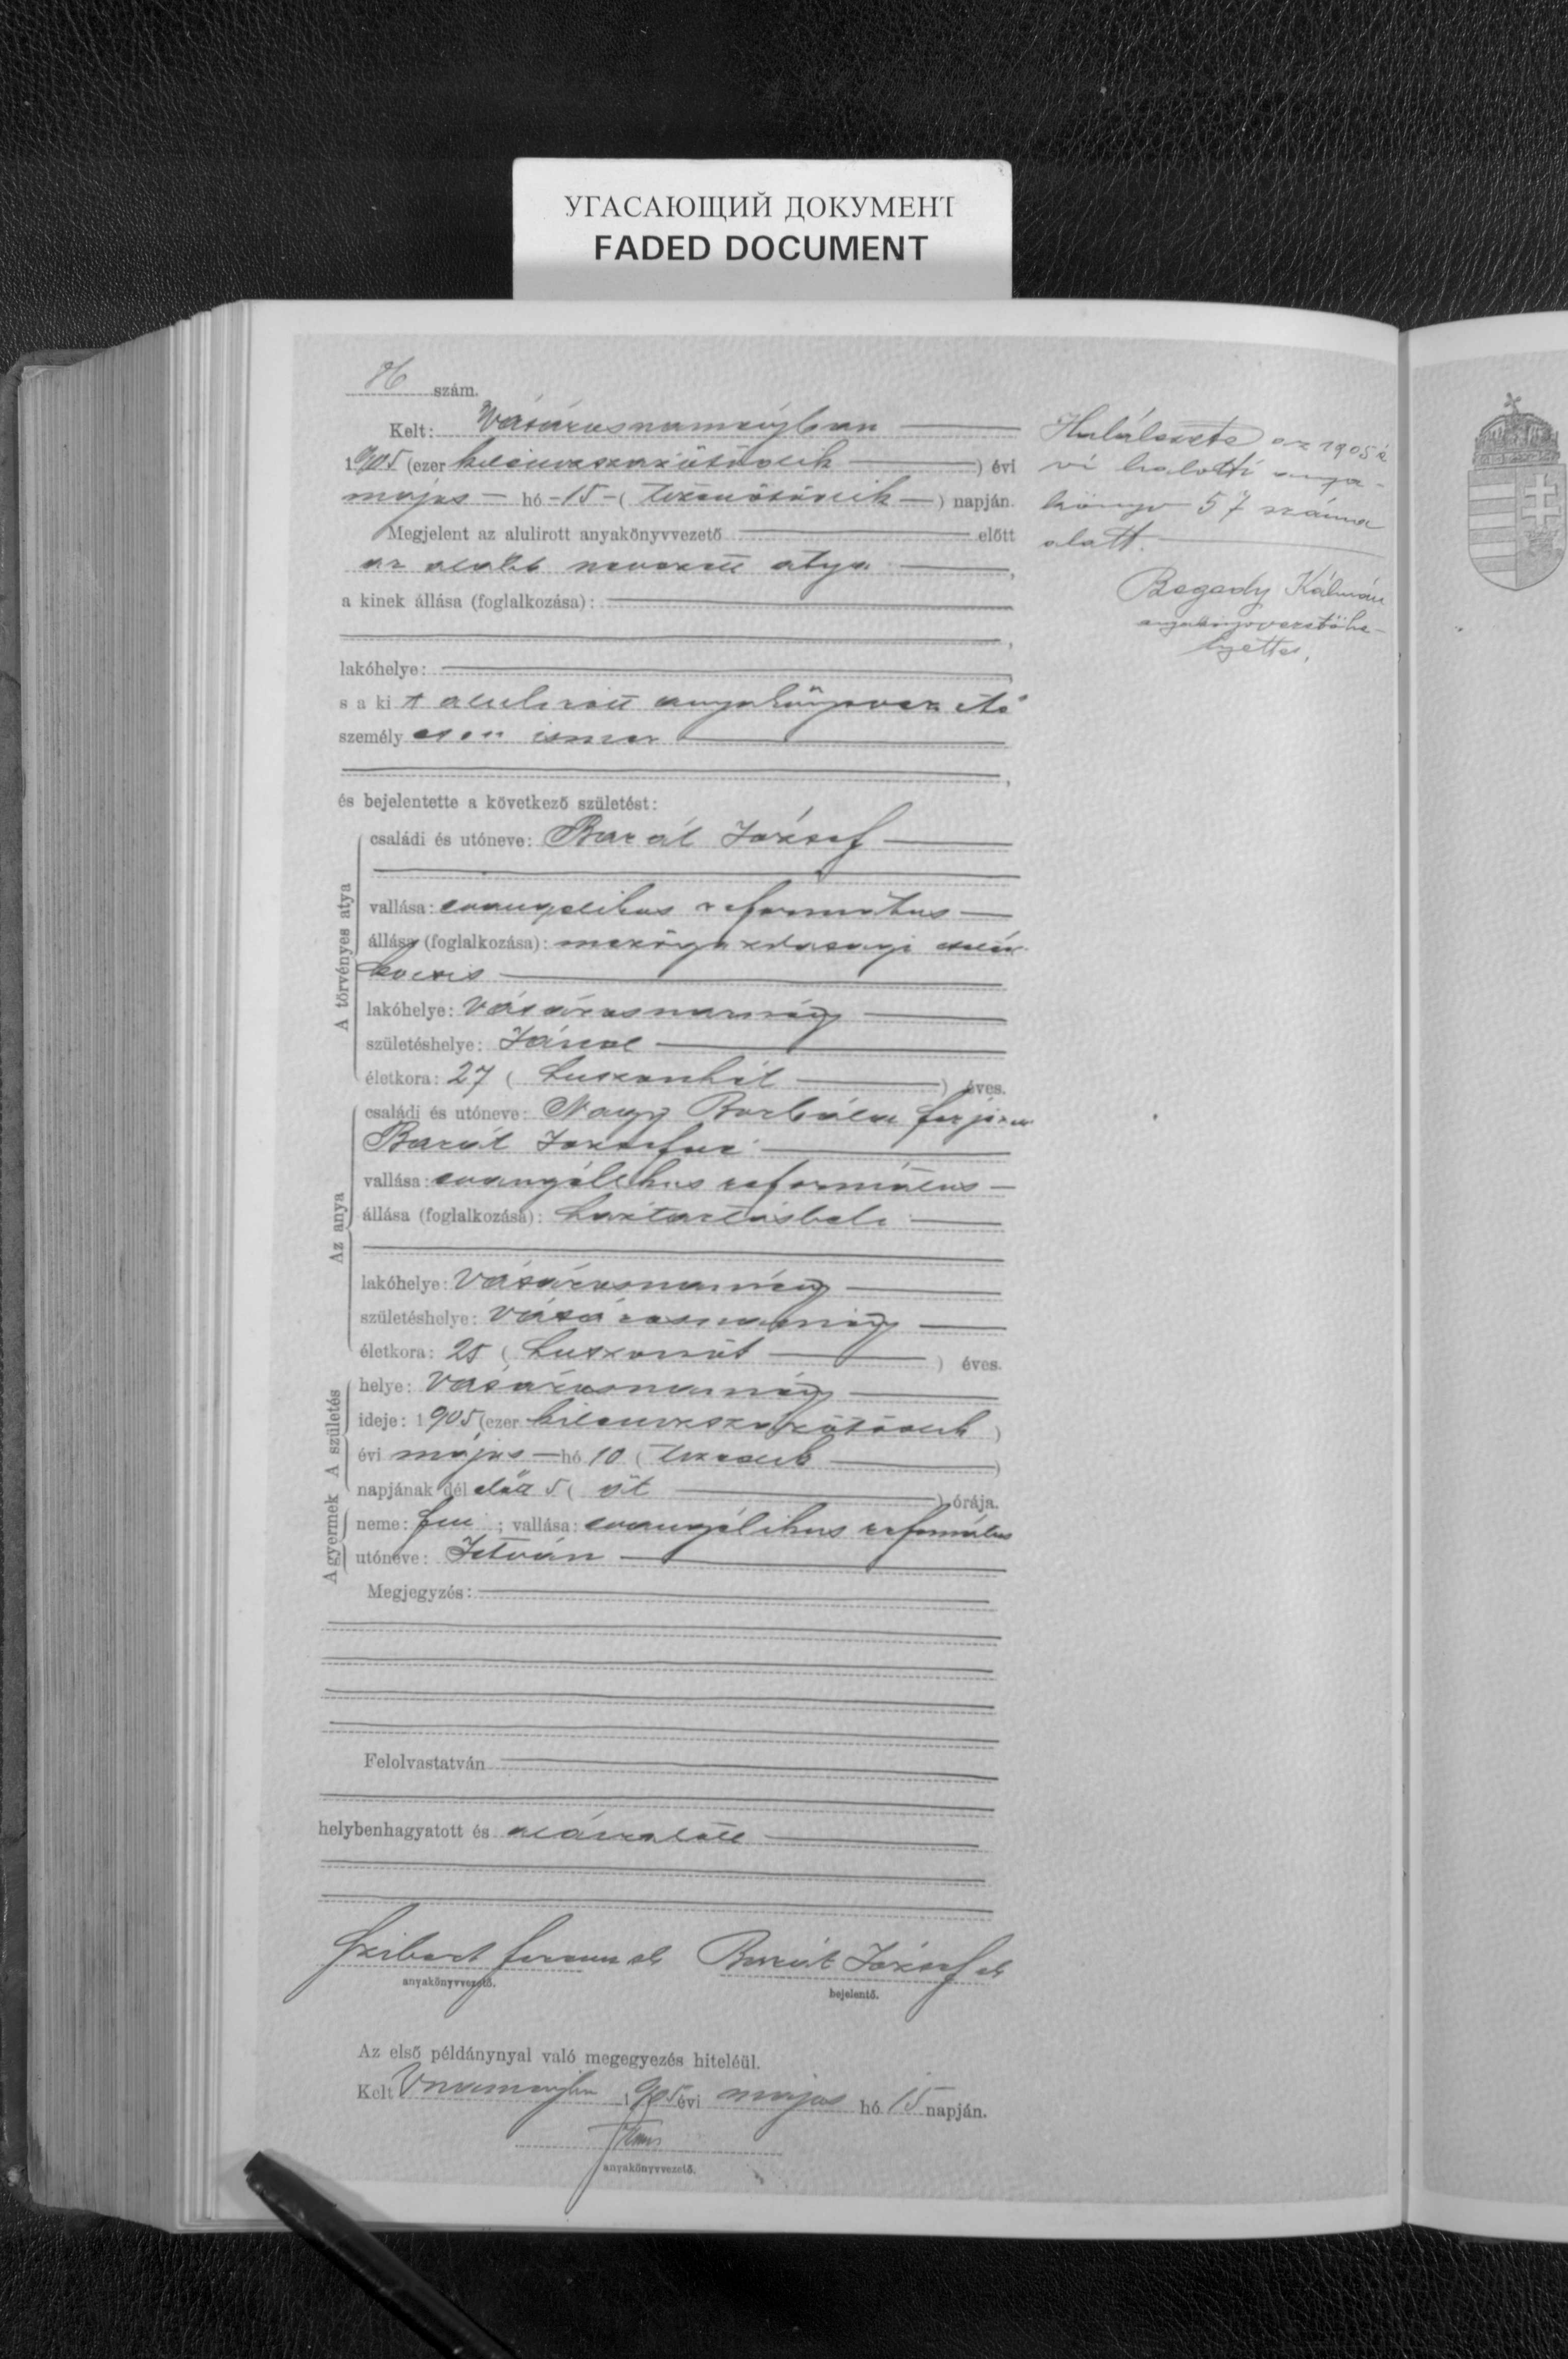 УГАСАЮЩИЙ ДОКУМЕНТ
FADED DOCUMENT
86 szám.
Kelt: Vásárosnaményban
1905 (ezer kilenczszázötödik) évi
május hó 15 (tizenötödik) napján.
Megjelent az alulirott anyakönyvvezető előtt
az alább nevezett atya,
a kinek állása (foglalkozása):
lakóhelye:
s a kit alulirott anyakönyvvezető
személyesen ismer
és bejelentette a következő születést:
A törvényes atya
családi és utóneve: Barát József
vallása: evangelikus református
állása (foglalkozása): mezőgazdasági
kocsis
lakóhelye: Vásárosnamény
születéshelye: Jánd
életkora: 27 (huszonhét) éves.
Az anya
családi és utóneve: Nagy Borbála férjezett
Barát Józsefné
vallása: evangélikus református
állása (foglalkozása): háztartásbeli
lakóhelye: Vásárosnamény
születéshelye: Vásárosnamény
életkora: 25 (huszonöt) éves.
A születés
helye: Vásárosnamény
ideje: 1905 (ezer kilenczszázötödik)
évi május hó 10 (tizedik)
napjának dél előtt 5 (öt) órája.
A gyermek
neme: fiu; vallása: evangélikus református
utóneve: István
Megjegyzés:
Felolvastatván
helybenhagyatott és aláiratott
Ferencz sk Barát József sk
anyakönyvvezető. bejelentő.
Az első példánynyal való megegyezés hiteléül.
Kelt Vnaményban 1905 évi május hó 15 napján.
anyakönyvvezető.
Halálesete az 1905 é
vi halotti anya-
könyv 57 száma
alatt.
Bagady Kálmán
anyakönyvvezetőhe-
lyettes.